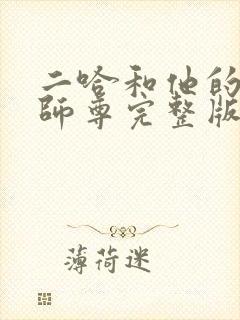 二哈和他的
師尊完整版
薄荷迷